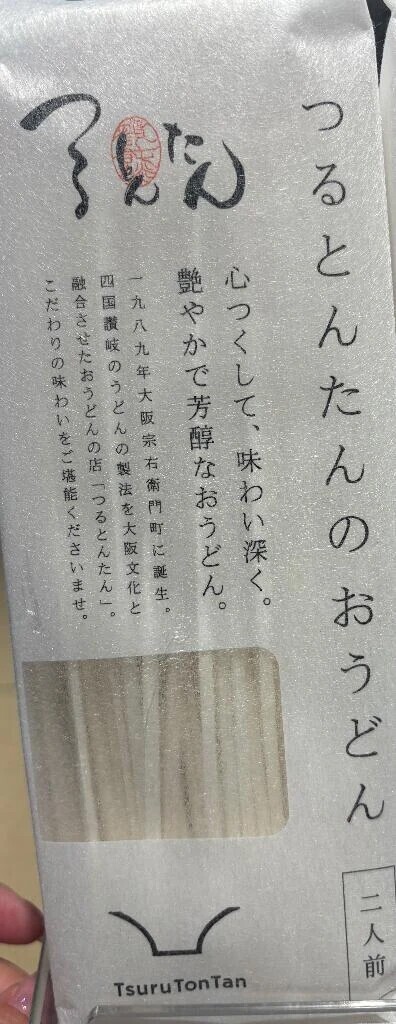 つるとんたんのおうどん
二人前
つるとんたん
心つくして、味わい深く。
艶やかで芳醇なおうどん。
一九八九年大阪宗右衛門町に誕生。
四国讃岐のうどんの製法を大阪文化と
融合させたおうどんの店「つるとんたん」。
こだわりの味わいをご堪能くださいませ。
TsuruTonTan